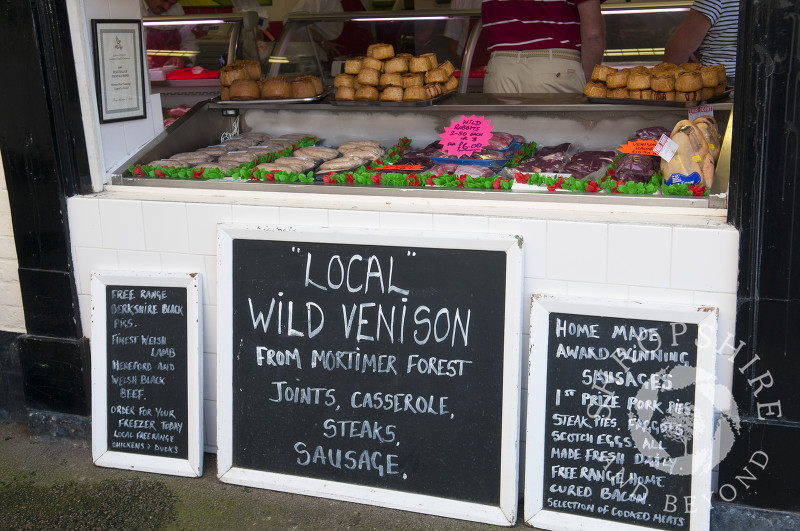 WILD
RABBITS
2-50 EACH
OR 3
£6.00
"LOCAL"
WILD VENISON
FROM MORTIMER FOREST
JOINTS, CASSEROLE,
STEAKS,
SAUSAGE.
FREE RANGE
BERKSHIRE BLACK
PIGS.
FINEST WELSH
LAMB
HEREFORD AND
WELSH BLACK
BEEF.
ORDER FOR YOUR
FREEZER TODAY
LOCAL FREE RANGE
CHICKENS & DUCKS
HOME MADE
AWARD WINNING
SAUSAGES
1ST PRIZE PORK PIES
STEAK PIES, FAGGOTS
SCOTCH EGGS. ALL
MADE FRESH DAILY
FREE RANGE HOME
CURED BACON.
SELECTION OF COOKED MEATS
SHROPSHIRE
AND BEYOND